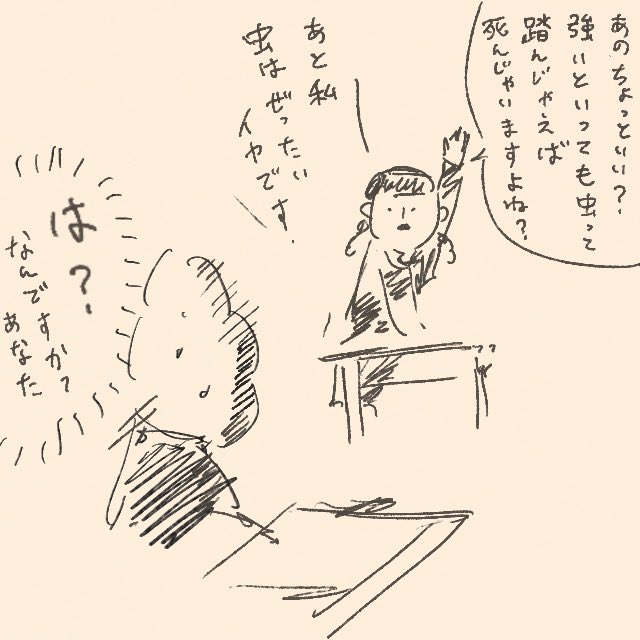 あのちょっといい？
強いといっても虫って
踏んじゃえば
死んじゃいますよね？
あと私
虫はぜったい
イヤです
は？
なんですか？
あなた